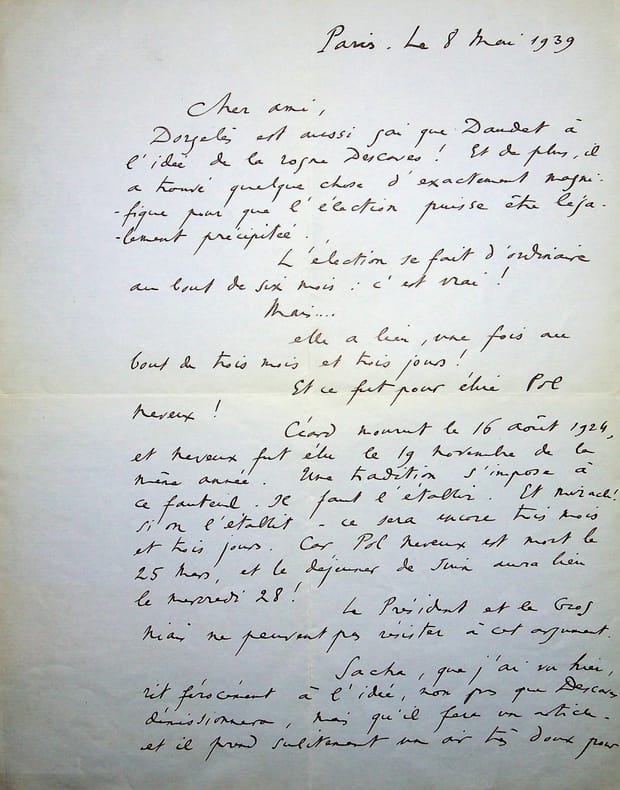 Paris. Le 8 Mai 1939
Cher ami,
Dorgelès est aussi gai que Daudet à
l'idée de la rogne Descaves ! Et de plus, il
a trouvé quelque chose d'exactement magni-
-fique pour que l'élection puisse être léga-
-lement précipitée.
L'élection se fait d'ordinaire
au bout de six mois : c'est vrai !
Mais....
elle a lieu, une fois au
bout de trois mois et trois jours !
Et ce fut pour élire Pol
Neveux !
Céard mourut le 16 août 1924,
et Neveux fut élu le 19 novembre de la
même année. Une tradition s'impose à
ce fauteuil. Il faut l'établir. Et miracle !
si on l'établit - ce sera encore trois mois
et trois jours. Car Pol Neveux est mort le
25 Mars, et le déjeuner de Juin aura lieu
le mercredi 28 !
Le Président et le Gros
Niais ne peuvent pas résister à cet argument.
Sacha, que j'ai vu hier,
rit férocement à l'idée, non pas que Descaves
démissionnera, mais qu'il fera un article -
et il prend subitement un air très doux pour